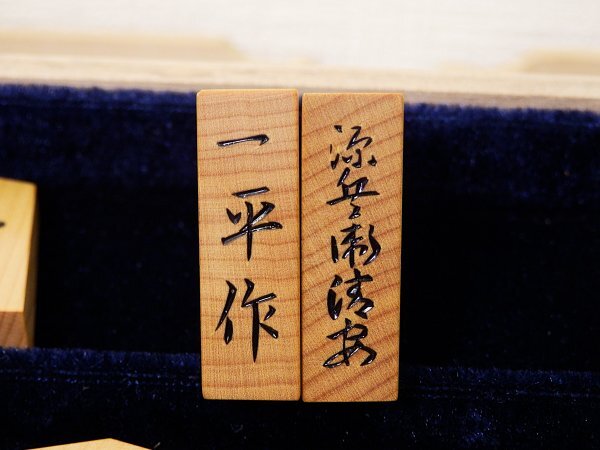 源兵衛清安
一平作